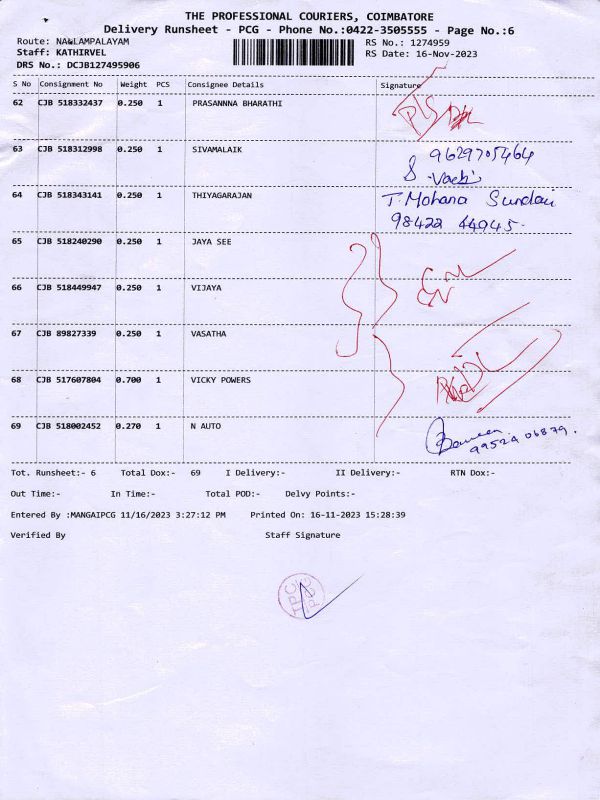 THE PROFESSIONAL COURIERS, COIMBATORE
Delivery Runsheet - PCG - Phone No.:0422-3505555 - Page No.:6
Route: NALLAMPALAYAM RS No.: 1274959
Staff: KATHIRVEL RS Date: 16-Nov-2023
DRS No.: DCJB127495906
S No Consignment No Weight PCS Consignee Details Signature
62 CJB 518332437 0.250 1 PRASANNNA BHARATHI
63 CJB 518312998 0.250 1 SIVAMALAIK 9629705464
64 CJB 518343141 0.250 1 THIYAGARAJAN T. Mohana Sundari
98422 44945.
65 CJB 518240290 0.250 1 JAYA SEE
66 CJB 518449947 0.250 1 VIJAYA
67 CJB 89827339 0.250 1 VASATHA
68 CJB 517607804 0.700 1 VICKY POWERS
69 CJB 518002452 0.270 1 N AUTO
99524 06879.
Tot. Runsheet:- 6 Total Dox:- 69 I Delivery:- II Delivery:- RTN Dox:-
Out Time:- In Time:- Total POD:- Delvy Points:-
Entered By :MANGAIPCG 11/16/2023 3:27:12 PM Printed On: 16-11-2023 15:28:39
Verified By Staff Signature